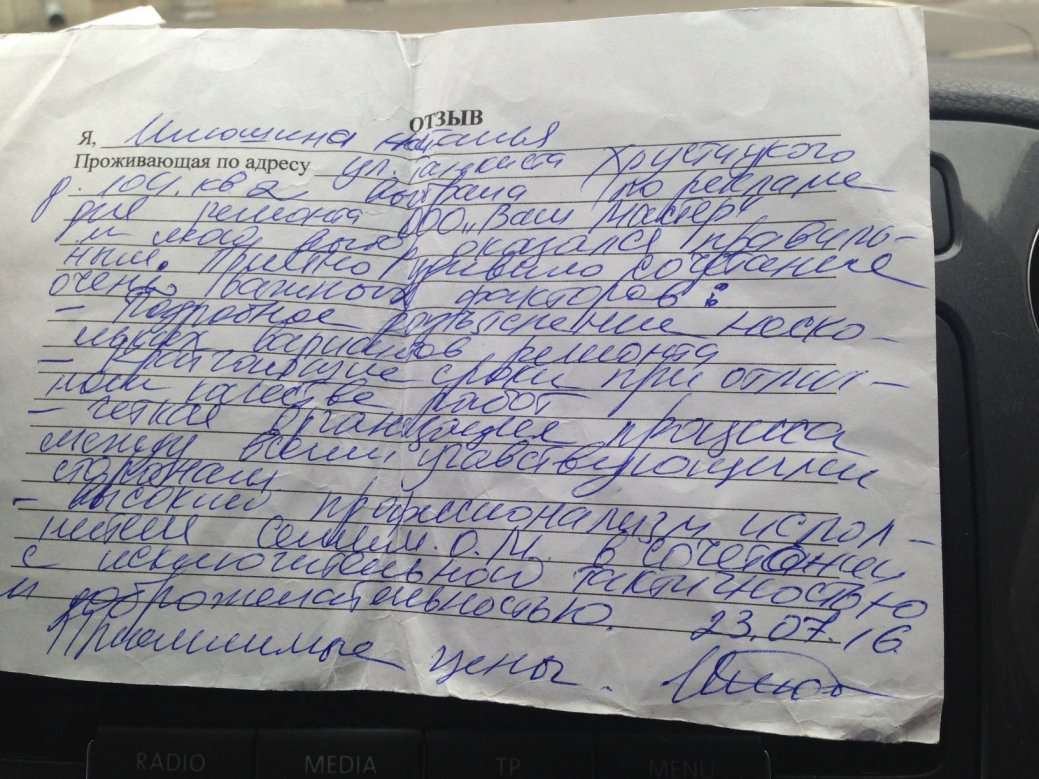 ОТЗЫВ
Я, Илюшина Наталья
Проживающая по адресу ул. танкиста Хрустицкого
д. 109. кв 2 выбрала по рекламе
для ремонта ООО "Ваш Мастер"
и мой выбор оказался правиль-
ным. Приятно удивило сочетание
очень важных факторов:
- Подробное разъяснение неско-
льких вариантов ремонта
- кратчайшие сроки при отлич-
ном качестве работ
- четкая организация процесса
между всеми участвующими
сторонами
- высокий профессионализм испол-
нителя О.М. в сочетании
с исключительной тактичностью
и доброжелательностью. 23.07.16
Приемлимые цены.
RADIO
MEDIA
TP
MENU